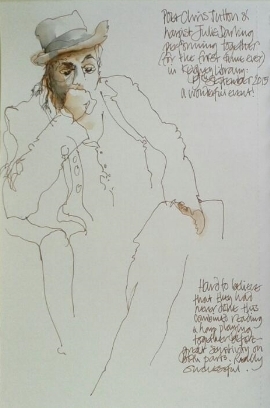 Poet Chris Tutton &
harpist Julie Darling
performing together
(for the first time ever)
in Library.
September 2015
a wonderful event!
Hard to believe
that they had
never done this
combined reading
& harp playing
together before –
great sensitivity on
both parts. Really
successful.